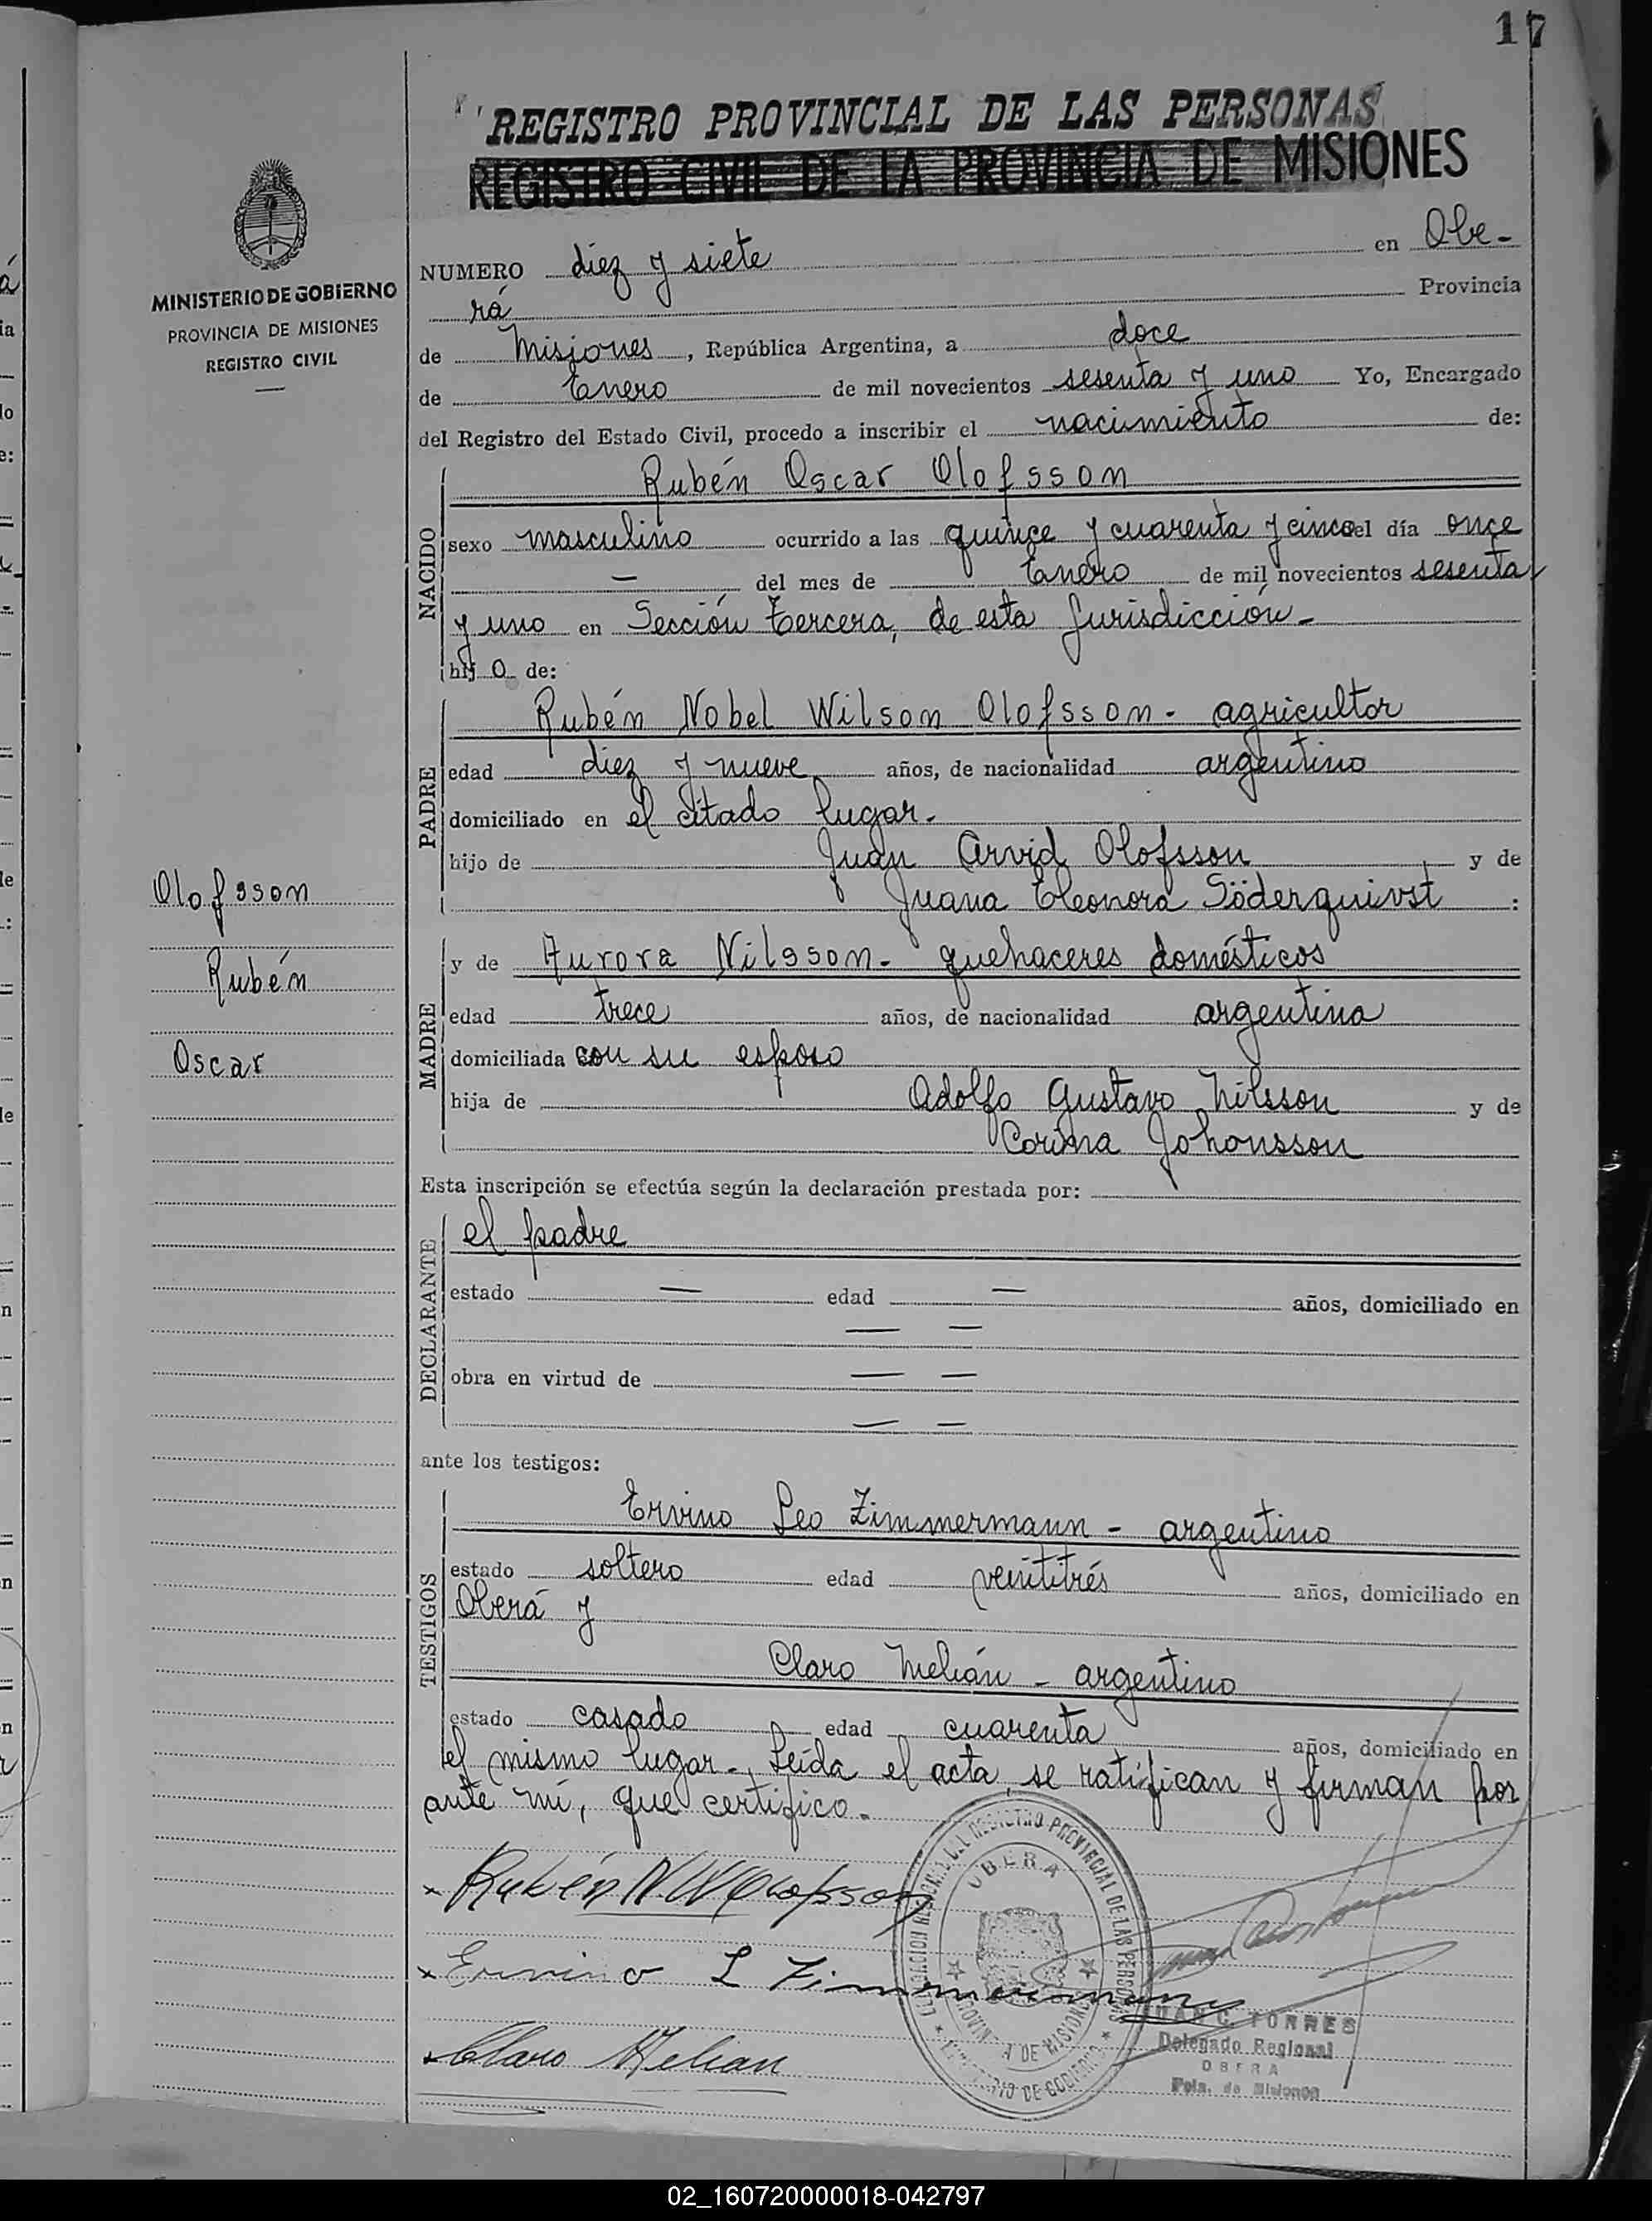 17
REGISTRO PROVINCIAL DE LAS PERSONAS
REGISTRO CIVIL DE LA PROVINCIA DE MISIONES
MINISTERIO DE GOBIERNO
PROVINCIA DE MISIONES
REGISTRO CIVIL
NUMERO diez y siete en Obe-
rá Provincia
de Misiones, República Argentina, a doce
de Enero de mil novecientos sesenta y uno Yo, Encargado
del Registro del Estado Civil, procedo a inscribir el nacimiento de:
NACIDO
Rubén Oscar Olofsson
sexo masculino ocurrido a las quince y cuarenta y cinco el día once
— del mes de Enero de mil novecientos sesenta
y uno en Sección tercera, de esta Jurisdicción-
hij o de:
PADRE
Rubén Nobel Wilson Olofsson- agricultor
edad diez y nueve años, de nacionalidad argentino
domiciliado en el citado lugar.
hijo de Juan Arvid Olofsson y de
Juana Eleonora Söderquivst :
MADRE
y de Aurora Nilsson- quehaceres domésticos
edad trece años, de nacionalidad argentina
domiciliada con su esposo
hija de Adolfo Gustavo Nilsson y de
Corina Johonsson
Olofsson
Rubén
Oscar
Esta inscripción se efectúa según la declaración prestada por:
DECLARANTE
el padre
estado — edad — años, domiciliado en
— —
obra en virtud de — —
— —
ante los testigos:
TESTIGOS
Ervino Leo Zimmermann - argentino
estado soltero edad veintitrés años, domiciliado en
Oberá y
Claro Melián - argentino
estado casado edad cuarenta años, domiciliado en
el mismo lugar-. Leída el acta, se ratifican y firman por
ante mí, que certifico.
x Rubén N W Olofsson
x Ervino L Zimmermann
x Claro Melian
DELEGACION REGIONAL DEL REGISTRO PROVINCIAL DE LAS PERSONAS
OBERA
PROVINCIA DE MISIONES
MINISTERIO DE GOBIERNO
JUAN C. TORRES
Delegado Regional
OBERA
Pcia. de Misiones
02_160720000018-042797